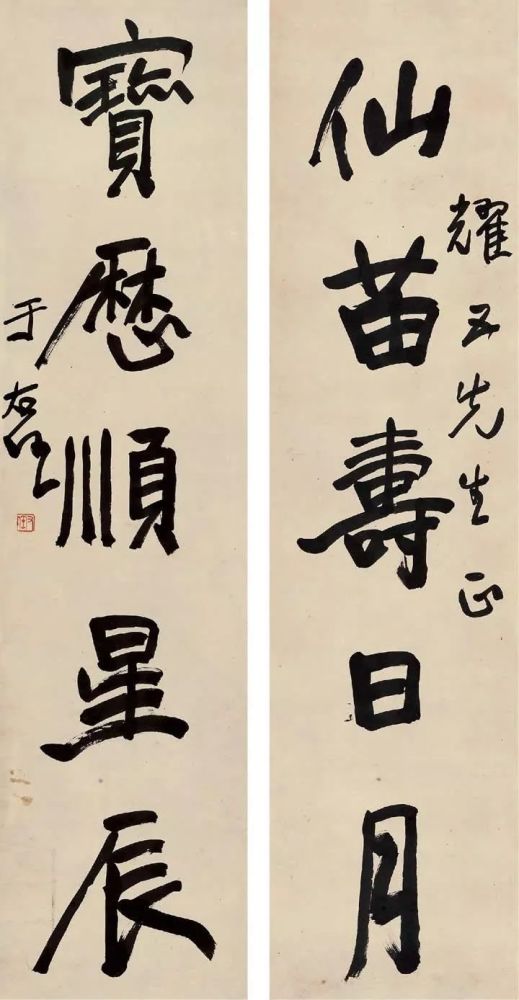 耀五先生正
仙苗壽日月
寶曆順星辰
于右任
右任